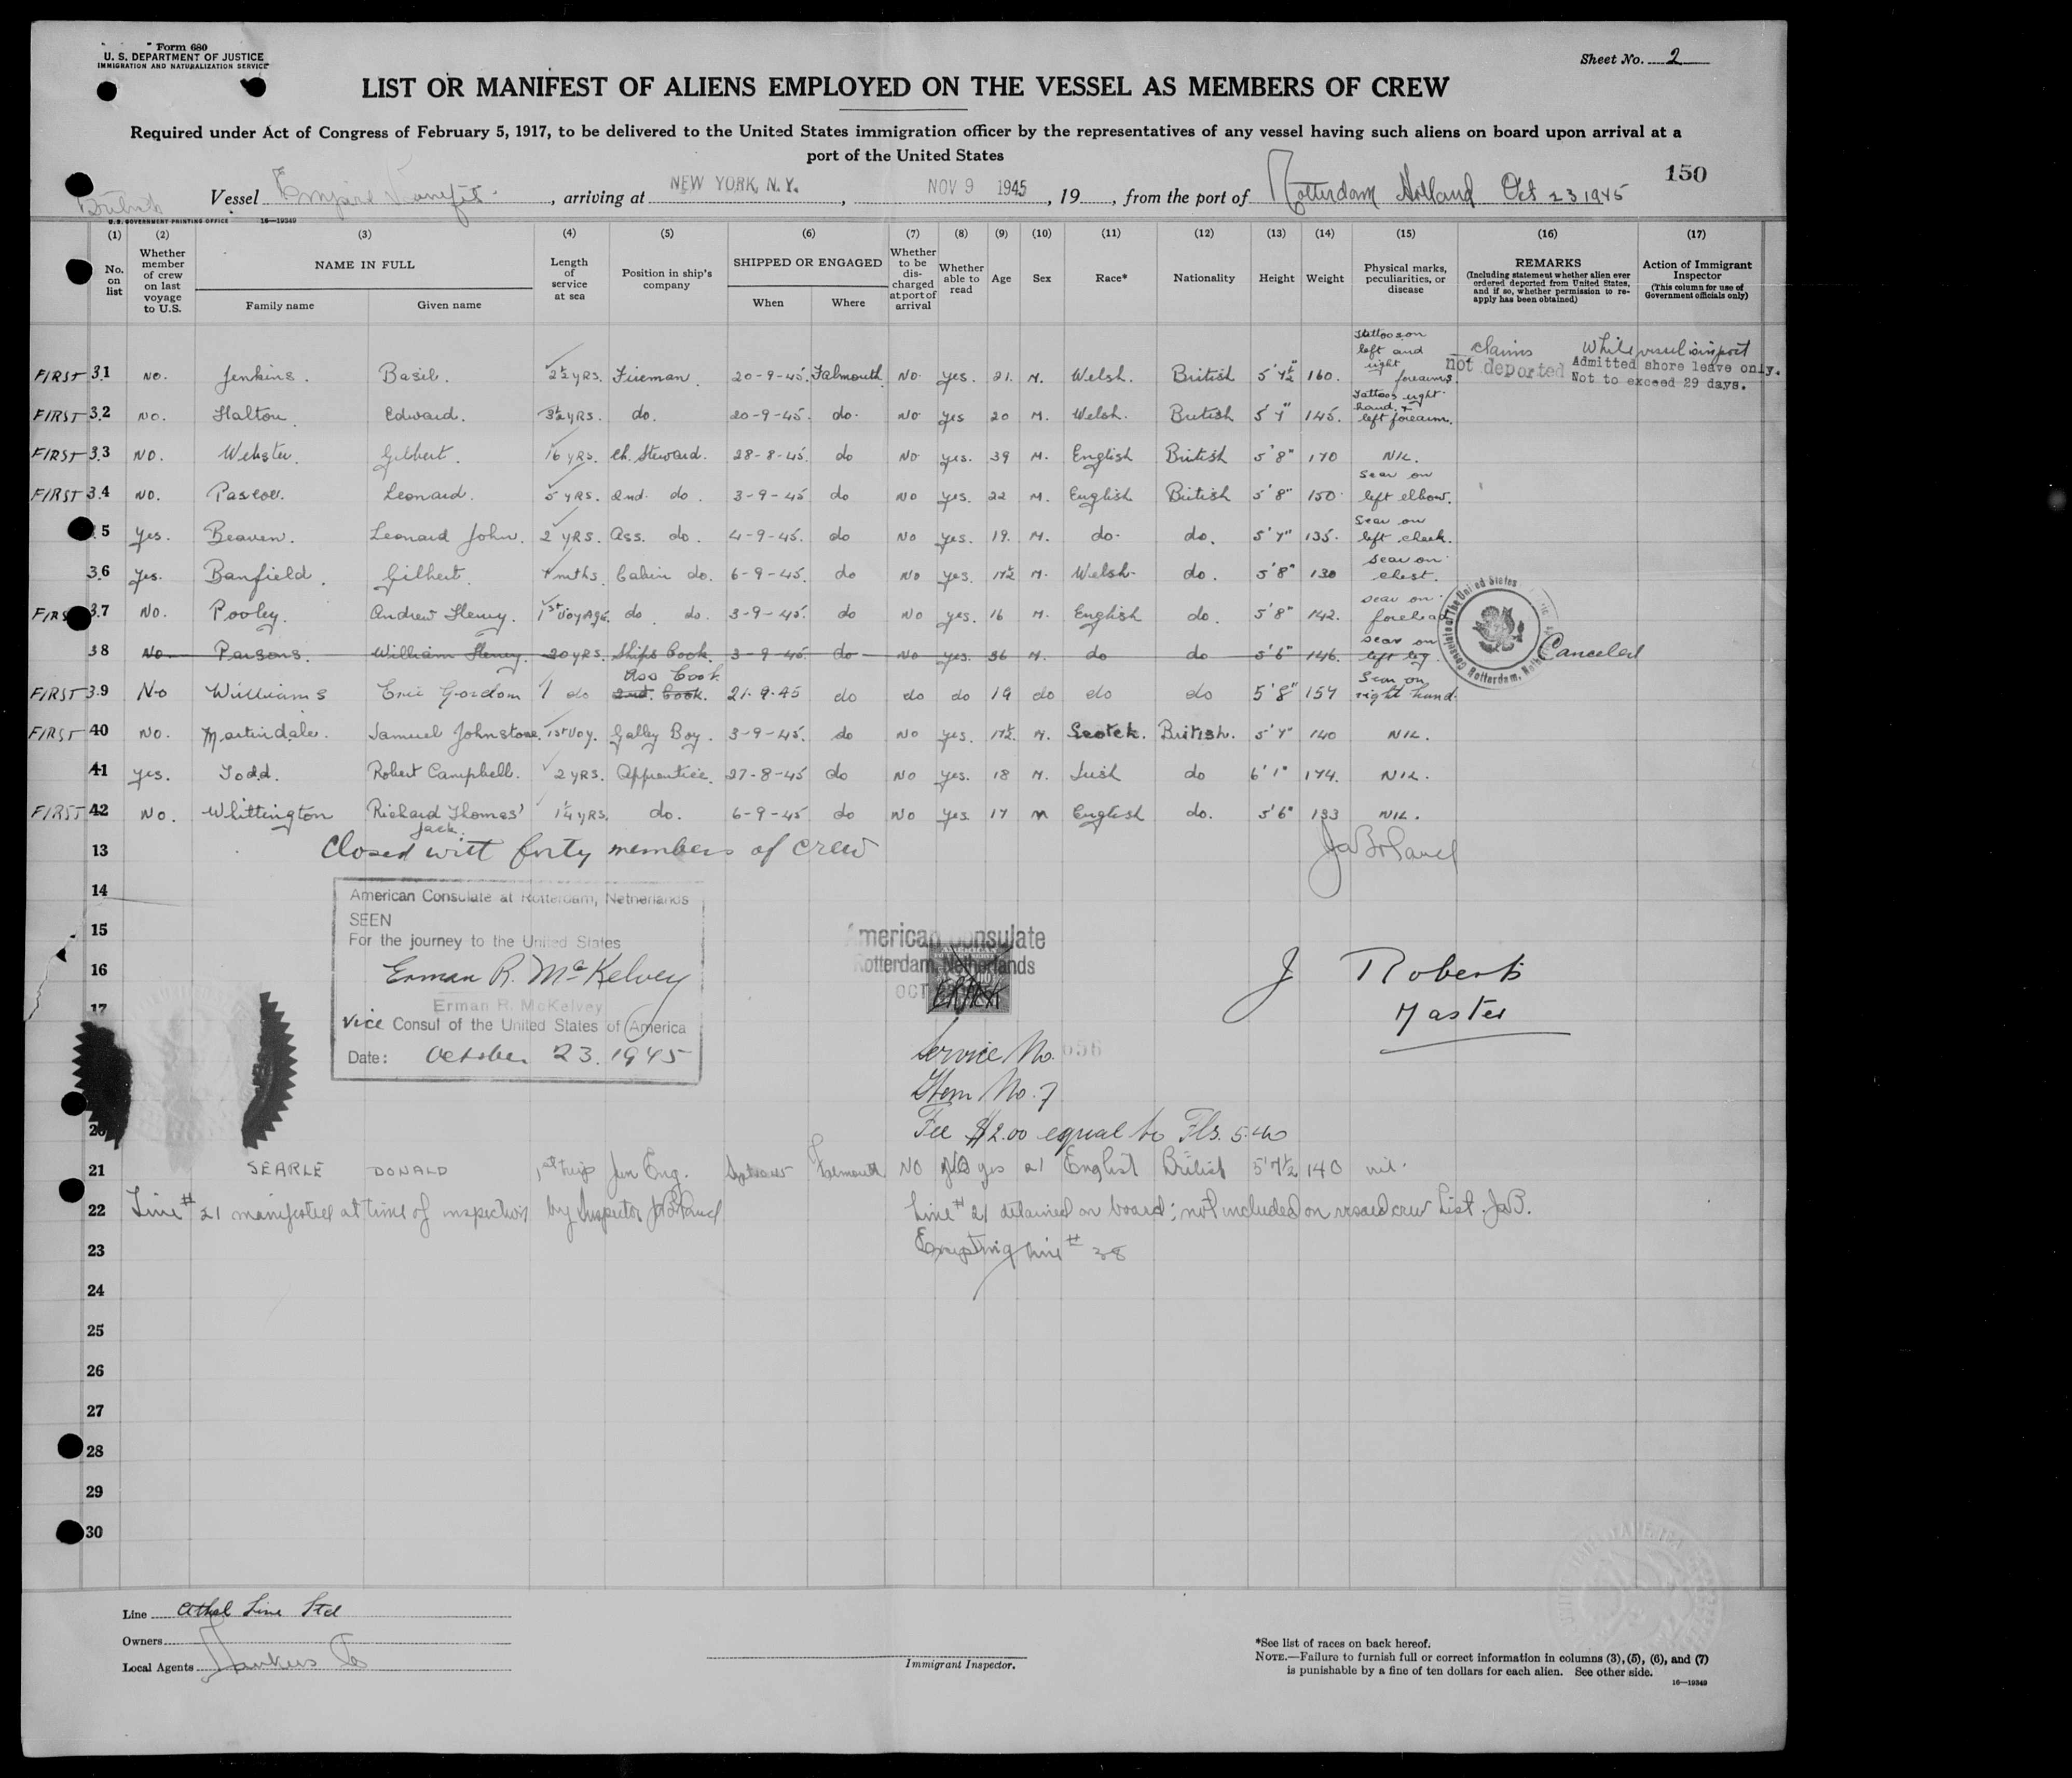 Form 680
U. S. DEPARTMENT OF JUSTICE
IMMIGRATION AND NATURALIZATION SERVICE
Sheet No. 2
LIST OR MANIFEST OF ALIENS EMPLOYED ON THE VESSEL AS MEMBERS OF CREW
Required under Act of Congress of February 5, 1917, to be delivered to the United States immigration officer by the representatives of any vessel having such aliens on board upon arrival at a
port of the United States
150
British Vessel Empire , arriving at NEW YORK, N.Y. , NOV 9 1945 , 19 , from the port of Rotterdam Holland Oct 23 1945
U. S. GOVERNMENT PRINTING OFFICE 16—19349
(1) (2) (3) (4) (5) (6) (7) (8) (9) (10) (11) (12) (13) (14) (15) (16) (17)
No. on list
Whether member of crew on last voyage to U.S.
NAME IN FULL
Family name
Given name
Length of service at sea
Position in ship's company
SHIPPED OR ENGAGED
When
Where
Whether to be discharged at port of arrival
Whether able to read
Age
Sex
Race*
Nationality
Height
Weight
Physical marks, peculiarities, or disease
REMARKS
(Including statement whether alien ever ordered deported from United States, and if so, whether permission to reapply has been obtained)
Action of Immigrant Inspector
(This column for use of Government officials only)
FIRST 31 No. Jenkins. Basil. 2½ YRS. Fireman. 20-9-45. Falmouth No. Yes. 21. M. Welsh. British 5'7½" 160. Tattoos on left and right forearms. claims not deported While vessel is in port Admitted shore leave only. Not to exceed 29 days.
FIRST 32 No. Halton. Edward. 3½ YRS. do. 20-9-45. do. No Yes 20 M. Welsh. British 5'7" 145. Tattoos right hand & left forearm.
FIRST 33 No. Webster. Gilbert. 16 YRS. Ch. Steward. 28-8-45. do No Yes. 39 M. English British 5'8" 170 NIL.
FIRST 34 No. Pascoe. Leonard. 5 YRS. 2nd. do. 3-9-45 do No Yes. 22 M. English British 5'8" 150 Scar on left elbow.
5 Yes. Beaven. Leonard John. 2 YRS. Ass. do. 4-9-45. do No Yes. 19. M. do. do. 5'7" 135. Scar on left cheek.
36 Yes. Banfield. Gilbert. 7 mths. Cabin do. 6-9-45. do No Yes. 17½ M. Welsh. do. 5'8" 130 Scar on chest.
FIRST 37 No. Pooley. Andrew Henry. 1st Voyage. do do. 3-9-45. do No Yes. 16 M. English do. 5'8" 142. Scar on forehead
38 No Parsons. William Henry. 20 YRS. Ships Cook. 3-9-45 do No Yes. 36 M. do do 5'6" 146. Scar on left leg. Canceled
FIRST 39 No Williams Eric Gordon 1 do Ass Cook 2nd. Cook. 21-9-45 do do do 19 do do do 5'8" 157 Scar on right hand.
FIRST 40 No. Martindale. Samuel Johnstone. 1st Voy. Galley Boy. 3-9-45. do No Yes. 17½. M. Scotch. British. 5'7" 140 NIL.
41 Yes. Todd. Robert Campbell. 2 YRS. Apprentice. 27-8-45 do No Yes. 18 M. Irish do 6'1" 174. NIL.
FIRST 42 No. Whittington Richard Thomas Jack. 1¼ YRS. do. 6-9-45 do No Yes. 17 M English do. 5'6" 133 NIL.
Consulate of the United States Rotterdam, Netherlands
13 Closed with forty members of crew
14
American Consulate at Rotterdam, Netherlands
SEEN
For the journey to the United States
Erman R. McKelvey
Erman R. McKelvey
Vice Consul of the United States of America
Date: October 23. 1945
15
American Consulate
Rotterdam, Netherlands
OCT
16
J Roberts
Master
17
Service No. 656
Item No. 7
Fee $2.00 equal to Fls. 5.40
20
21 SEARLE DONALD 1st trip Jun Eng. Falmouth No yes 21 English British 5'7½ 140 nil.
22 Line # 21 manifested at time of inspection by Inspector Line # 21 detained on board; not included on visaed crew list. JaB.
23 Excepting line # 38
24
25
26
27
28
29
30
Line Athel Line Ltd
Owners
Local Agents
Immigrant Inspector.
*See list of races on back hereof.
NOTE.—Failure to furnish full or correct information in columns (3), (5), (6), and (7)
is punishable by a fine of ten dollars for each alien. See other side.
16—19349